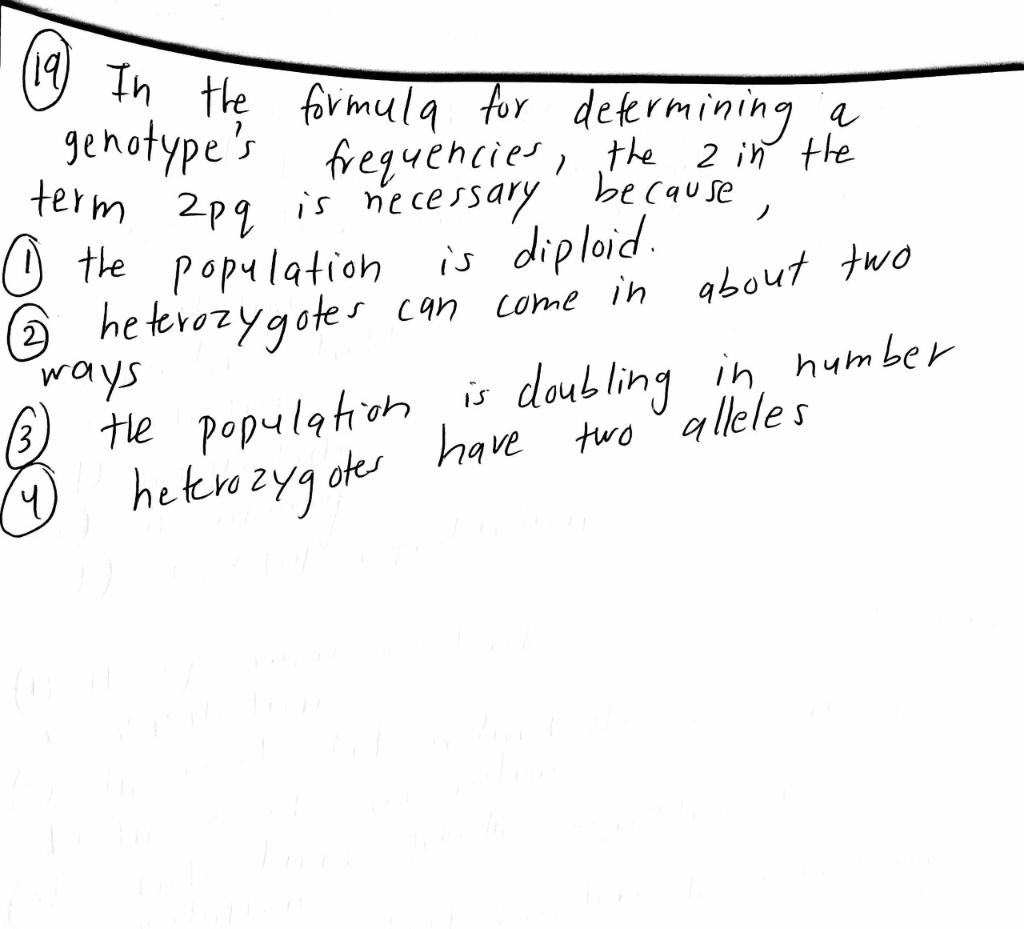 19 In the formula for determining a
genotype's frequencies, the 2 in the
term 2pq is necessary because,
1 the population is diploid.
2 heterozygotes can come in about two
ways
3 the population is doubling in number
4 heterozygotes have two alleles